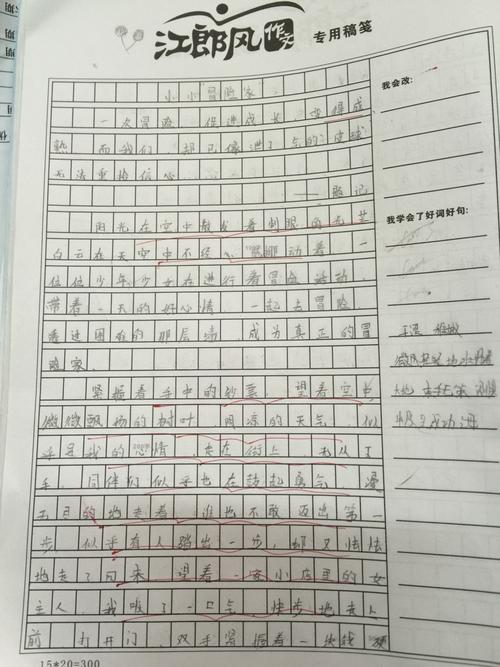 江郎风作文 专用稿笺
小小"冒险家"
一次冒险 促进成长 变得成
熟 而我们 却已像泄了气的皮球
无法重拾信心
——题记
阳光在空中散发着刺眼的光芒
白云在天空中不经心 动着 一
位位少年少女在进行着冒险活动,
带着一天的好心情 一起去冒险,
透过困难的那层墙 成为真正的冒
险家.
紧握着手中的钞票 望着空中
微微飘扬的树叶,阴凉的天气,似
乎是我的心情,走在街上,无从下
手,同伴们似乎也在鼓起勇气,漫
无目的地走着,谁也不敢迈出第一
步,似乎有人踏出一步,却又怯怯
地走了回来 望着一家小店里的女
主人,我吸了一口气,快步地走上
前 打开门,双手紧握着一块钱
15*20=300
我会改:
我学会了好词好句: